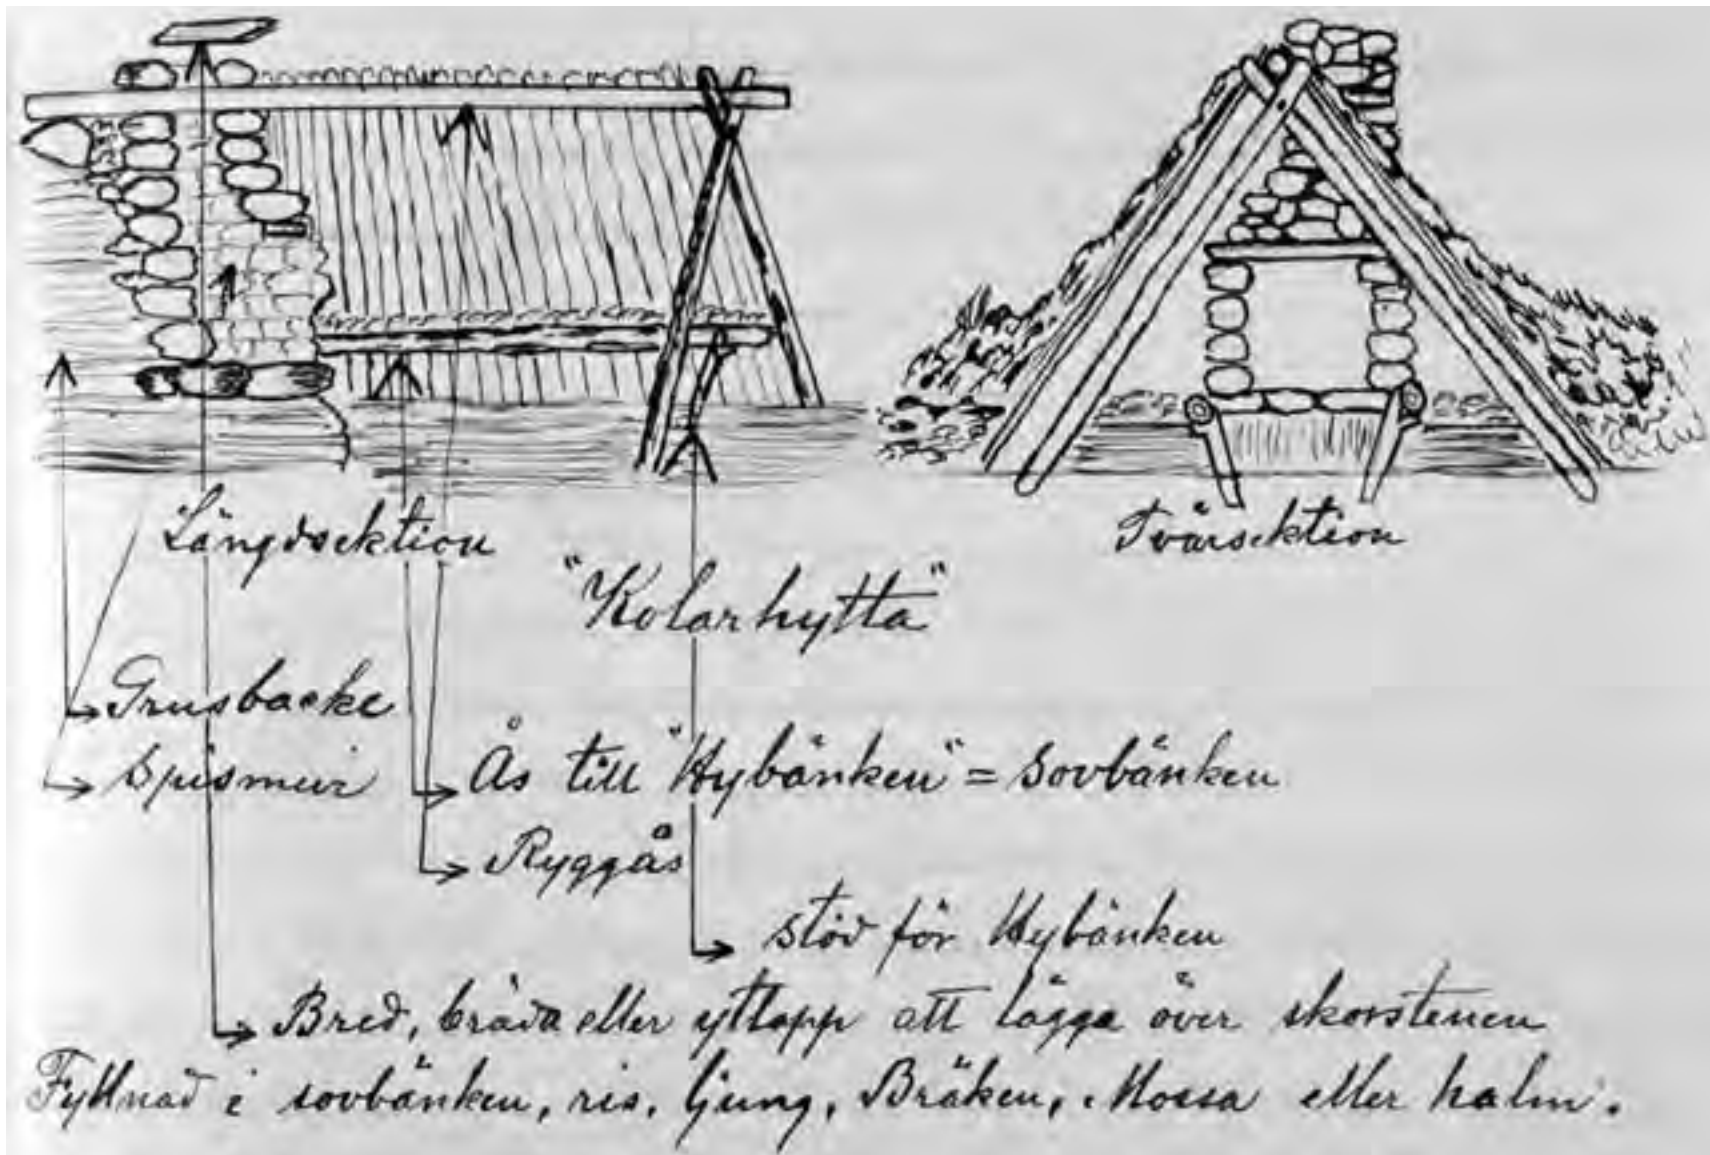 Längdsektion
Tvärsektion
"Kolarhytta"
Grusbacke
Spismur
Ås till "Hybänken" = Sovbänken
Ryggås
stöd för Hybänken
Bred, bräda eller yttapp att lägga över skorstenen
Fyllnad i sovbänken, ris, ljung, Bräken, Mossa eller halm.